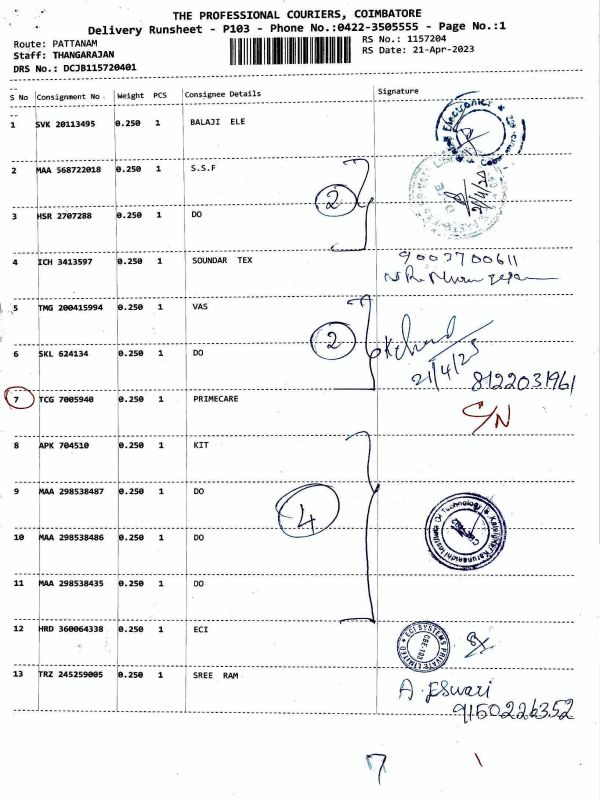 THE PROFESSIONAL COURIERS, COIMBATORE
Delivery Runsheet - P103 - Phone No.:0422-3505555 - Page No.:1
Route: PATTANAM RS No.: 1157204
Staff: THANGARAJAN RS Date: 21-Apr-2023
DRS No.: DCJB115720401
S No Consignment No Weight PCS Consignee Details Signature
1 SVK 20113495 0.250 1 BALAJI ELE
2 MAA 568722018 0.250 1 S.S.F
2
3 HSR 2707288 0.250 1 DO
4 ICH 3413597 0.250 1 SOUNDAR TEX 9003700611
5 TMG 200415994 0.250 1 VAS
2
6 SKL 624134 0.250 1 DO
21/4/23
8122031961
7 TCG 7005940 0.250 1 PRIMECARE C/N
8 APK 704510 0.250 1 KIT
9 MAA 298538487 0.250 1 DO
4
10 MAA 298538486 0.250 1 DO
11 MAA 298538435 0.250 1 DO
12 HRD 360064338 0.250 1 ECI ECI SYSTEMS PRIVATE LIMITED CBE-103
13 TRZ 245259005 0.250 1 SREE RAM A. Eswari
9150226352
7